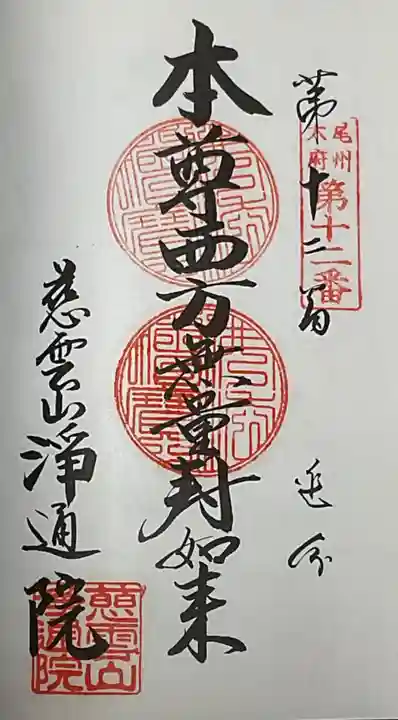 尾州
大府
第十二番
第十二番
本尊西方無量寿如来
慈雲山淨通院
慈雲山
淨通院